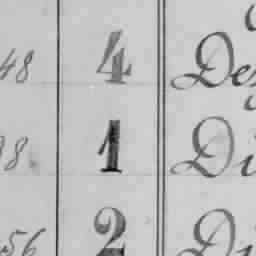 48 4 De
8 1 Di
56 2 Di